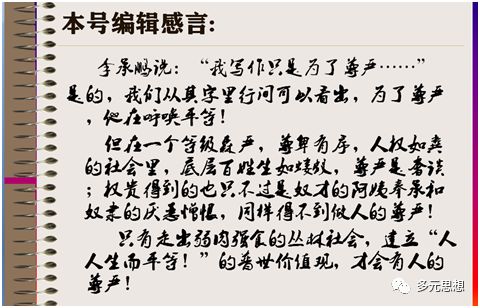 本号编辑感言:
李承鹏说：“我写作只是为了尊严……”
是的，我们从其字里行间可以看出，为了尊严
，他在呼唤平等！
但在一个等级森严，尊卑有序，人权如粪
的社会里，底层百姓生如蝼蚁，尊严是奢谈
；权贵得到的也只不过是奴才的阿姨奉承和
奴隶的厌恶憎恨，同样得不到做人的尊严！
只有走出弱肉强食的丛林社会，建立“人
人生而平等！”的普世价值观，才会有人的
尊严！
多元思想